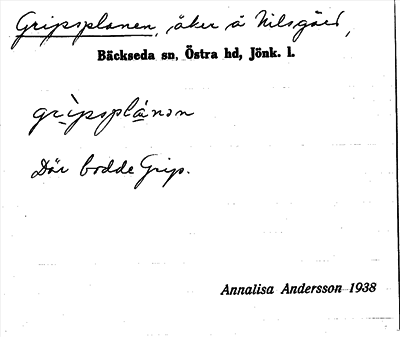 Gripsplanen, åker å Nilsgård,
Bäckseda sn, Östra hd, Jönk. l.
grìpsplánən
Där bodde Grip.
Annalisa Andersson 1938